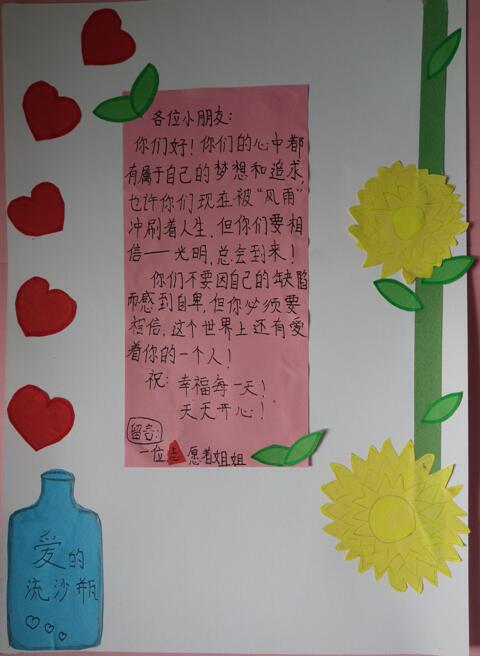 各位小朋友：
你们好！你们的心中都
有属于自己的梦想和追求，
也许你们现在被“风雨”
冲刷着人生，但你们要相
信——光明，总会到来！
你们不要因自己的缺陷
而感到自卑，但你必须要
相信，这个世界上还有爱
着你的一个人！
祝：幸福每一天！
天天开心！
留言：
一位志愿者姐姐
爱的
流沙瓶